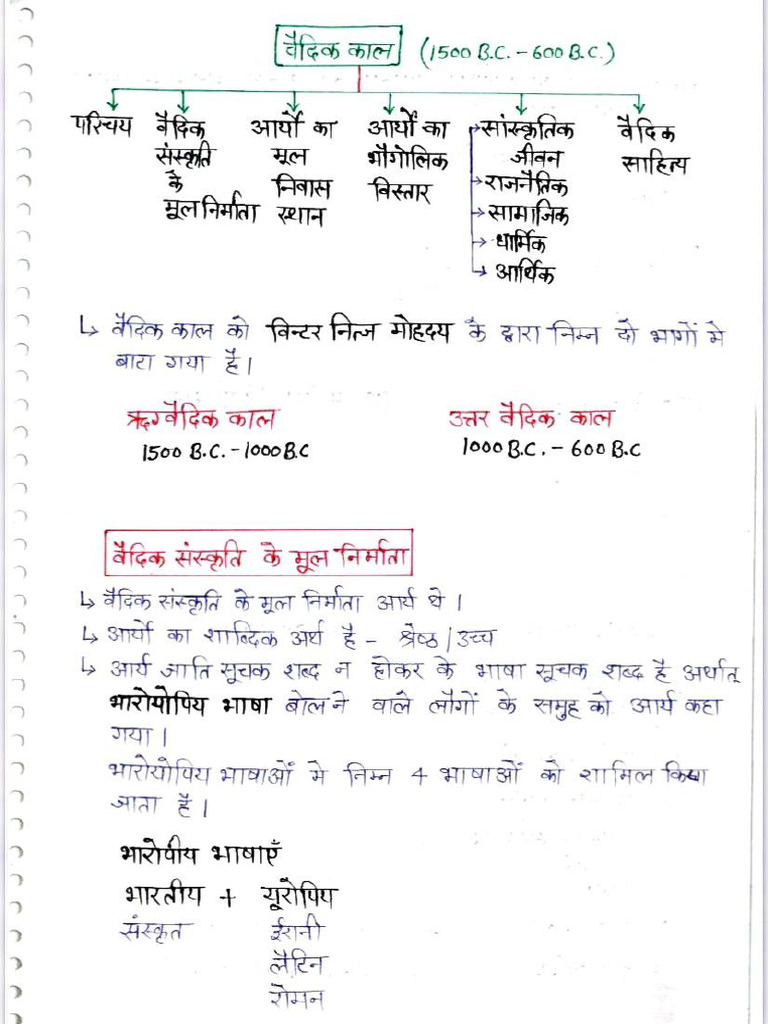 वैदिक काल (1500 B.C. - 600 B.C.)
परिचय
वैदिक
संस्कृति
के
मूल निर्माता
आर्यों का
मूल
निवास
स्थान
आर्यों का
भौगोलिक
विस्तार
सांस्कृतिक
जीवन
राजनैतिक
सामाजिक
धार्मिक
आर्थिक
वैदिक
साहित्य
↳ वैदिक काल को विन्टर नित्ज मोहृदय के द्वारा निम्न दो भागों मे
बाटा गया है।
ऋग्वैदिक काल
1500 B.C. - 1000 B.C
उत्तर वैदिक काल
1000 B.C. - 600 B.C
वैदिक संस्कृति के मूल निर्माता
↳ वैदिक संस्कृति के मूल निर्माता आर्य थे।
↳ आर्यो का शाब्दिक अर्थ है - श्रेष्ठ / उच्च
↳ आर्य जाति सूचक शब्द न होकर के भाषा सूचक शब्द है अर्थात्
भारोयोपिय भाषा बोलने वाले लोगों के समुह को आर्य कहा
गया।
भारोयोपिय भाषाओं मे निम्न 4 भाषाओं को शामिल किया
जाता है।
भारोपीय भाषाएँ
भारतीय + यूरोपिय
संस्कृत ईरानी
लैटिन
रोमन